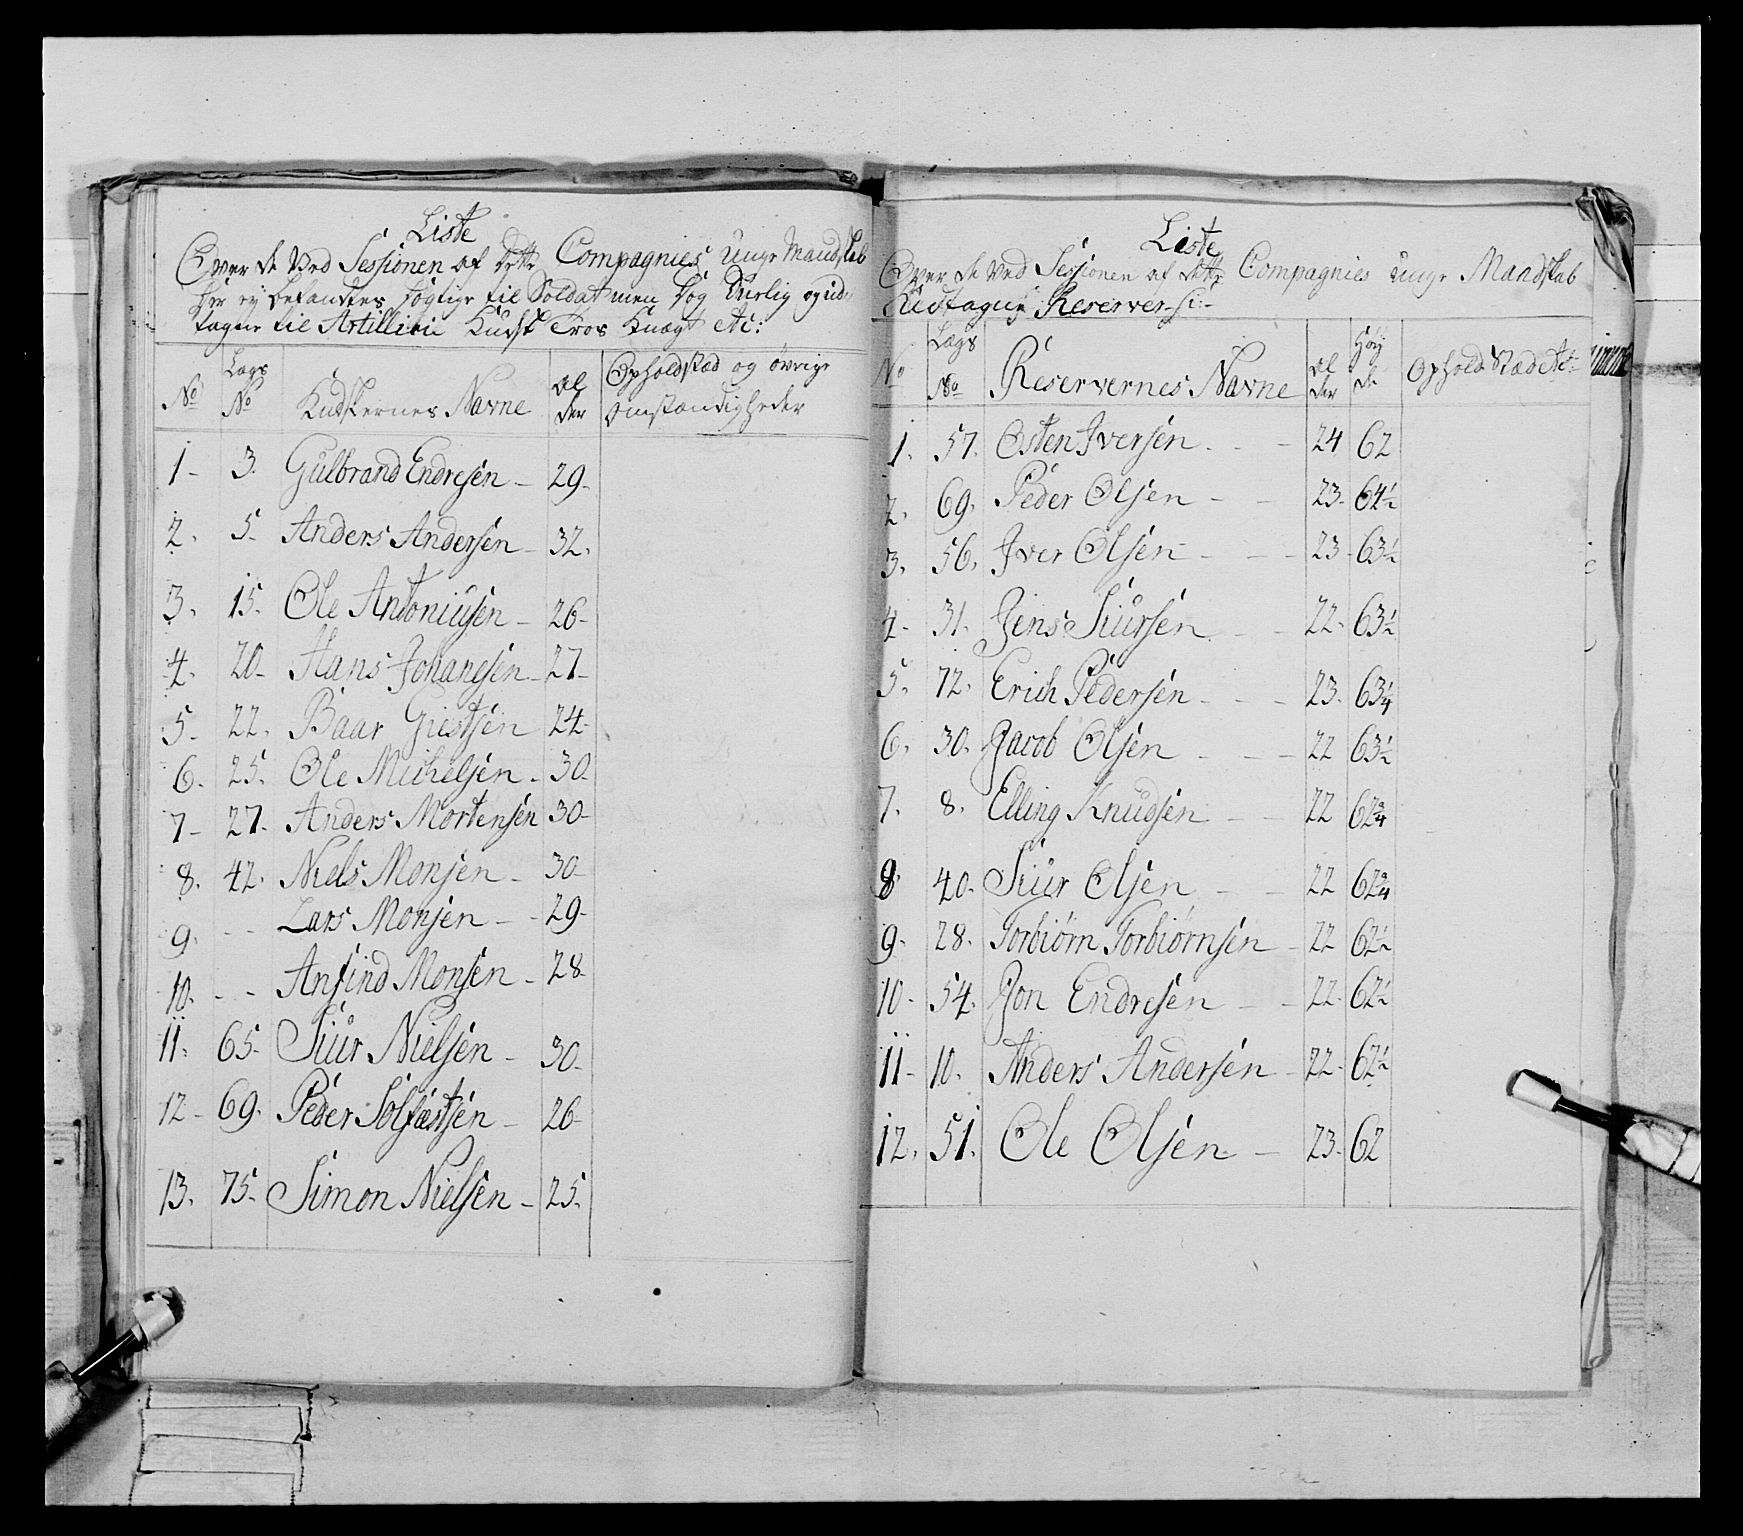 Liste
Over de ved Sessionen af dette Compagnies unge Mandskab
der ej befandtes dygtige til Soldat men dog og ud
tagne til Artillerie Kudsk Tros Knægt etc:
No Lægs No Kudskernes Navne Alder Opholdstæd og øvrige omstændigheder
1 - 3. Gulbrand Endresen - 29.
2. 5. Anders Andersen - 32.
3. 15. Ole Antoniusen - 26.
4. 20. Hans Johanesen - 27.
5. 22. Baar Giestsen 24.
6. 25. Ole Michelsen - 30.
7 - 27. Anders Mortensen 30.
8. 42. Niels Monsen - 30.
9. - - Lars Monsen - - 29.
10. - - Anfind Monsen - 28.
11. 65. Siur Nielsen - 30.
12 - 69. Peder Solfæstsen - 26.
13. 75. Simon Nielsen - 25.
Liste
Over de ved Sessionen af dette Compagnies unge Mandskab
Udtagne Reserver
No Lægs No Reservernes Navne Alder Høyde Ophold Stæd etc:
1. 57. Osten Iversen. - - 24 62
2. 69. Peder Olsen - - 23. 64½
3. 56. Iver Olsen - - - 23 - 63½
4. 31. Jens Siursen - - 22. 63½
5. 72. Erich Pedersen - - - 23. 63¼
6. 30. Jacob Olsen - - - 22 63½
7. 8. Elling Knudsen - - 22 62¾
8. 40. Siur Olsen - - 22 62¾
9. 28. Torbiørn Torbiørnsen - 22 62½
10. 54. Jon Endresen - - 22. 62½
11. 10. Anders Andersen - 22. 62½
12. 51. Ole Olsen - - 23. 62